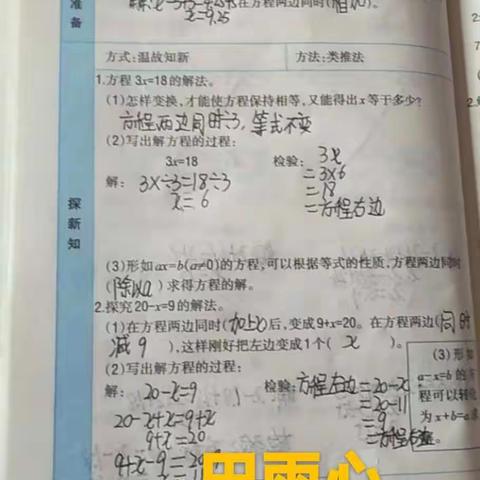 准
备
在方程两边同时
x=9.25
方式:温故知新 方法:类推法
1.方程3x=18的解法。
(1)怎样变换,才能使方程保持相等,又能得出x等于多少?
方程两边同时÷3,等式不变
(2)写出解方程的过程:
3x=18 检验: 3x
解: 3x÷3=18÷3 =3×6
x=6 =18
=方程右边
探
新
知
(3)形如ax=b(a≠0)的方程,可以根据等式的性质,方程两边同时
(除以a)求得方程的解。
2.探究20-x=9的解法。
(1)在方程两边同时(加上x)后,变成9+x=20。在方程两边(同时
减9 ),这样刚好把左边变成1个( x )。
(2)写出解方程的过程:
解: 20-x=9 检验:方程左边=20-x
20-x+x=9+x =20-11
9+x=20 =9
=方程右边
9+x-9=20
(3)形如
a-x=b的方
程可以转化
为x+b=a